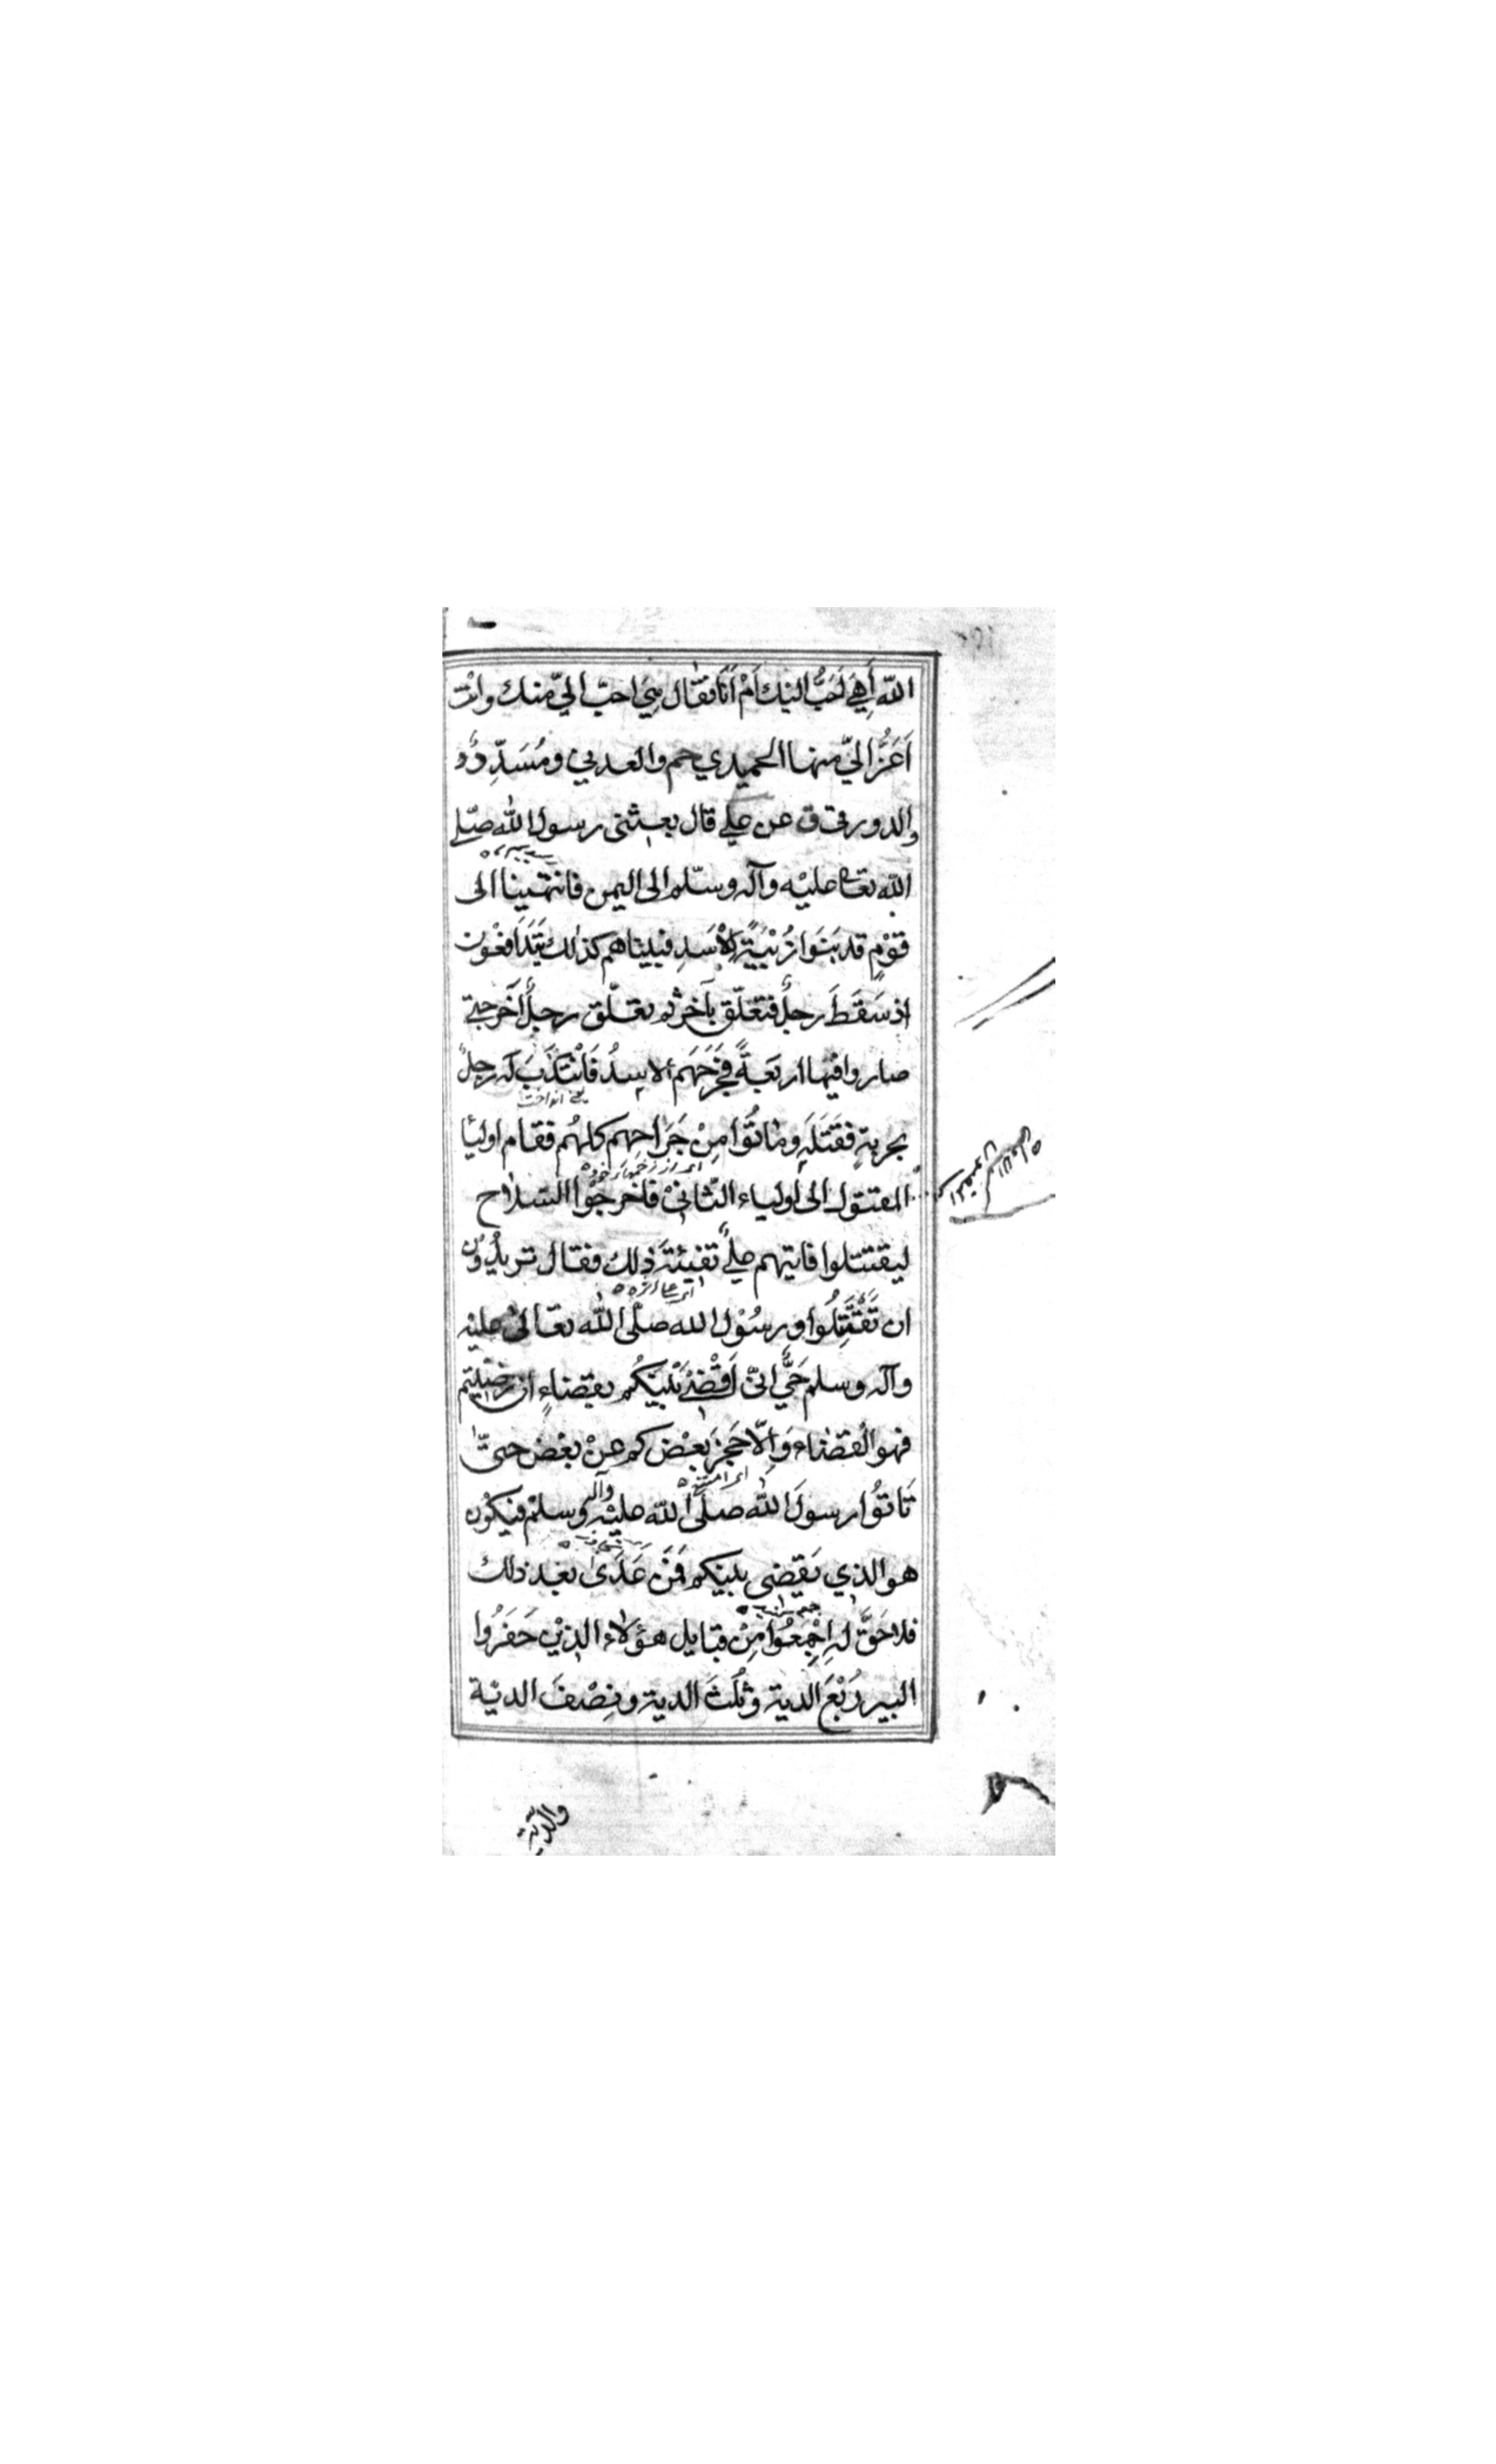 الله أَهِيَ اَحَبُّ اليك اَمْ اَنَا فقال هِيَ احبّ اليّ منك وانت
اَعَزُّ اليّ منها الحميدي حم والعدني ومُسَدِّدٌ و
والدورقي ق عن علي قال بعثني رسول الله صلّى
الله تعالى عليه وآله وسلم الى اليمن فانتهينا الى
قوْمٍ قد بَنَوا زُبْيَةً لِلْاَسَدِ فبيناهم كذلك يَتَدَافَعُون
اذ سَقَطَ رجلٌ فتعَلّق بآخر ثم تعلّق رجلٌ آخر حتى
صاروا فيها اربَعَةً فجَرَحَهم الاسدُ فَانْتَدَبَ له رجلٌ
بحربةٍ فقَتَلَه وماتُوا مِنْ جَرَاحِهم كلهُم فقام اوليا
المقتول الى اولياء الثّانيْ فاخرجُوا السّلاح
ليقتتلوا فاتيهم عليٌّ تفِيئَةَ ذلك فقال تريدُون
ان تَقْتَتِلُوا ورسُوْل الله صلّى الله تعالىْ عليْه
وآله وسلم حَيٌّ انّي اَقْضِيْ بَيْنَكُم بقضاءٍ ان رضيتم
فهو القضاء وَالّا حَجَزَ بَعْضكم عنْ بعْض حتّى
تَاتُوا رسولَ الله صَلّى الله عليْه وآله وسلم فيكوْن
هو الذي يَقضي بينكم فَمَنْ عَدَىٰ بعْد ذلك
فلا حَقَّ له اِجْمَعُوا مِنْ قبايل هؤلاء الذيْن حَفَرُوا
البير رُبْعَ الدية وثُلُثَ الدية ونِصْفَ الدية
والدّية